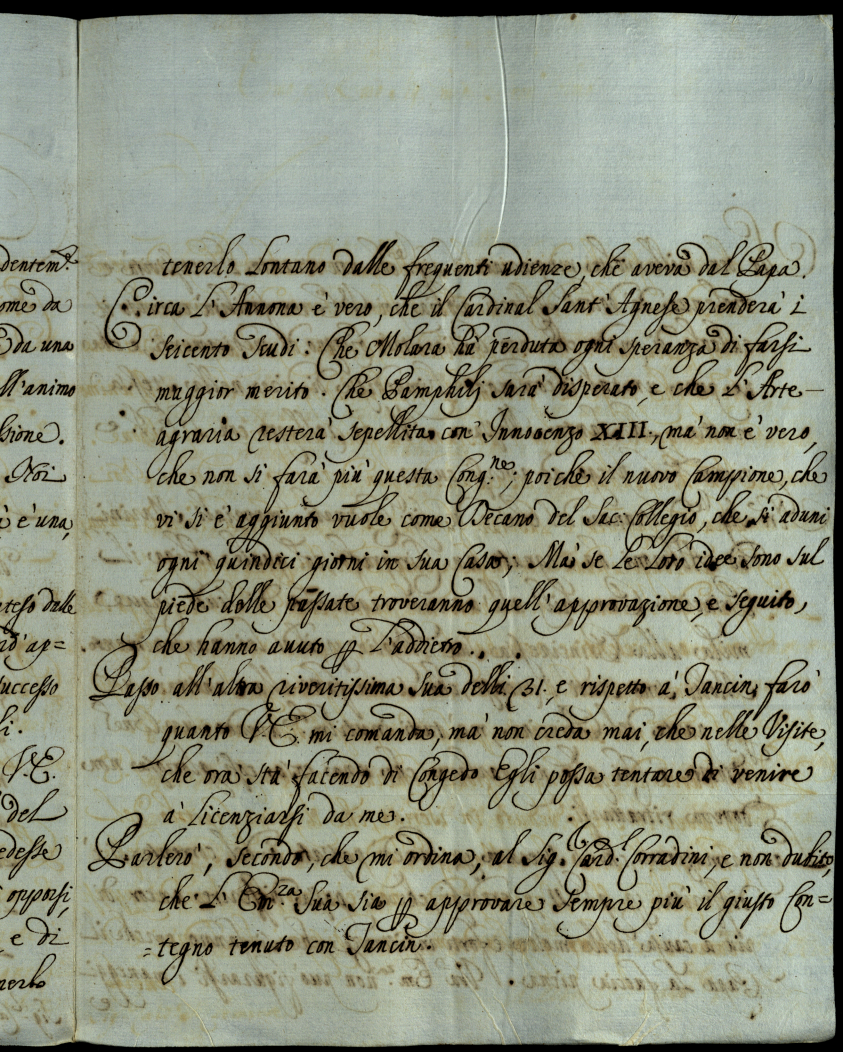 dentem.te
ome da
da una
ll'animo
ssione.
Noi
à è una,
nteso dalle
rd' ap=
successo
li.
V.E.
del
edesse
opporsi,
e di
nerlo
tenerlo Lontano dalle frequenti udienze, che aveva dal Papa.
Circa L'Annona è vero, che il Cardinal Sant'Agnese prenderà i
seicento Scudi: Che Molara hà perduta ogni speranza di farsi
maggior merito. Che Pamphilj sarà disperato, e che L'Arte
agraria resterà sepellita con Innocenzo XIII., mà non è vero,
che non si farà più questa Cong.ne; poiche il nuovo Campione, che
vi si è aggiunto vuole come Decano del Sac: Collegio, che si aduni
ogni quindici giorni in sua Casa; Mà se Le Loro idee sono sul
piede delle passate troveranno quell'approvazione, e seguito,
che hanno avuto p L'addietro.
Passo all'altra riveritissima Sua delli 31., e rispetto à Tancin, farò
quanto V.E. mi comanda, mà non creda mai, che nelle Visite,
che ora stà facendo di Congedo Egli possa tentare di venire
à Licenziarsi da me.
Parlerò, secondo, che mi ordina, al Sig.r Card.l Corradini, e non dubito,
che L'Em.za Sua sia p approvare sempre più il giusto Con=
=tegno tenuto con Tancin.